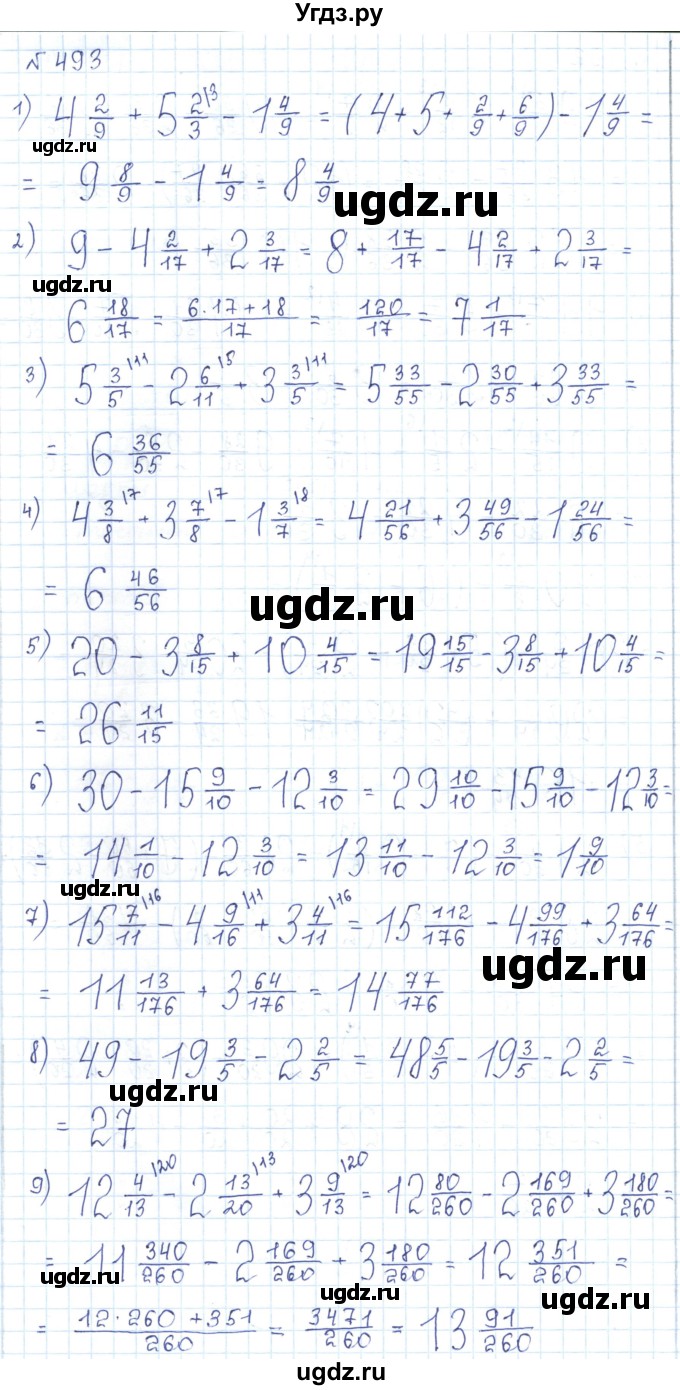 Угдз.ру
№ 493
1) 4 2/9 + 5 2/3 |3 - 1 4/9 = (4 + 5 + 2/9 + 6/9) - 1 4/9 =
ugdz.ru
= 9 8/9 - 1 4/9 = 8 4/9
ugdz.ru
2) 9 - 4 2/17 + 2 3/17 = 8 + 17/17 - 4 2/17 + 2 3/17 =
ugdz.ru
6 18/17 = 6·17+18/17 = 120/17 = 7 1/17
ugdz.ru
3) 5 3/5 |11 - 2 6/11 |5 + 3 3/5 |11 = 5 33/55 - 2 30/55 + 3 33/55 =
= 6 36/55
4) 4 3/8 |7 + 3 7/8 |7 - 1 3/7 |8 = 4 21/56 + 3 49/56 - 1 24/56 =
= 6 46/56
ugdz.ru
5) 20 - 3 8/15 + 10 4/15 = 19 15/15 - 3 8/15 + 10 4/15 =
= 26 11/15
6) 30 - 15 9/10 - 12 3/10 = 29 10/10 - 15 9/10 - 12 3/10 =
= 14 1/10 - 12 3/10 = 13 11/10 - 12 3/10 = 1 9/10
ugdz.ru
7) 15 7/11 |16 - 4 9/16 |11 + 3 4/11 |16 = 15 112/176 - 4 99/176 + 3 64/176 =
ugdz.ru
= 11 13/176 + 3 64/176 = 14 77/176
8) 49 - 19 3/5 - 2 2/5 = 48 5/5 - 19 3/5 - 2 2/5 =
ugdz.ru
= 27
9) 12 4/13 |20 - 2 13/20 |13 + 3 9/13 |20 = 12 80/260 - 2 169/260 + 3 180/260 =
= 11 340/260 - 2 169/260 + 3 180/260 = 12 351/260 =
ugdz.ru
ugdz.ru
= 12·260+351/260 = 3471/260 = 13 91/260
ugdz.ru